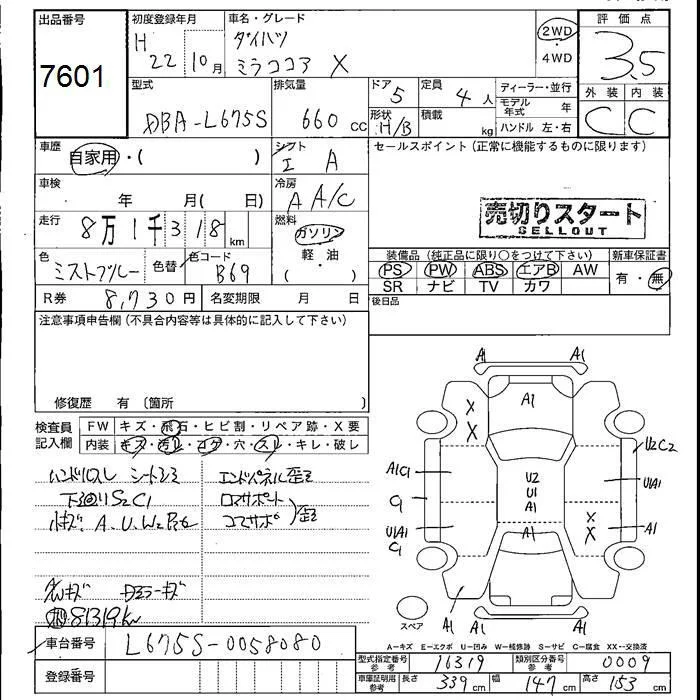 出品番号
7601
初度登録年月
H 22 10月
車名・グレード
ダイハツ
ミラココア X
2WD
4WD
評価点
3.5
外装 内装
C C
型式
DBA-L675S
排気量
660 cc
ドア
5
形状
H/B
定員
4人
積載
kg
ディーラー・並行
モデル年式 年
ハンドル 左・右
車歴
自家用・( )
シフト
I A
セールスポイント(正常に機能するものに限ります)
車検
年 月( 日)
冷房
A A/C
売切りスタート
SELLOUT
走行
8万1千318km
燃料
ガソリン
軽・油
( )
色
ミストブルー
色替
色コード
B69
装備品(純正品に限り○をつけて下さい)
PS PW ABS エアB AW
SR ナビ TV カワ
新車保証書
有・無
R券 8,730円
名変期限 月 日
後日品
注意事項申告欄(不具合内容等は具体的に記入して下さい)
修復歴 有 〔箇所 〕
検査員記入欄
FW キズ・飛石・ヒビ割・リペア跡・X要
内装 キズ・汚レ・コゲ・穴・スレ・キレ・破レ
下廻りS2C1
A、U、W2
エンドパネル歪
コアサポ
81319km
車台番号
L675S-0058080
登録番号
A1 A1
A1
X
X
U2C2
A1C1
U2
U1
A1
U1A1
C1
X
X
U1A1
C1
A1
A1
A1
A1
A1
スペア
A=キズ E=エクボ U=凹み W=補修跡 S=サビ C=腐食 XX=交換済
型式指定番号 参考 16319
類別区分番号 参考 0009
車庫証明用 参考 長さ 339cm 幅 147cm 高さ 153cm